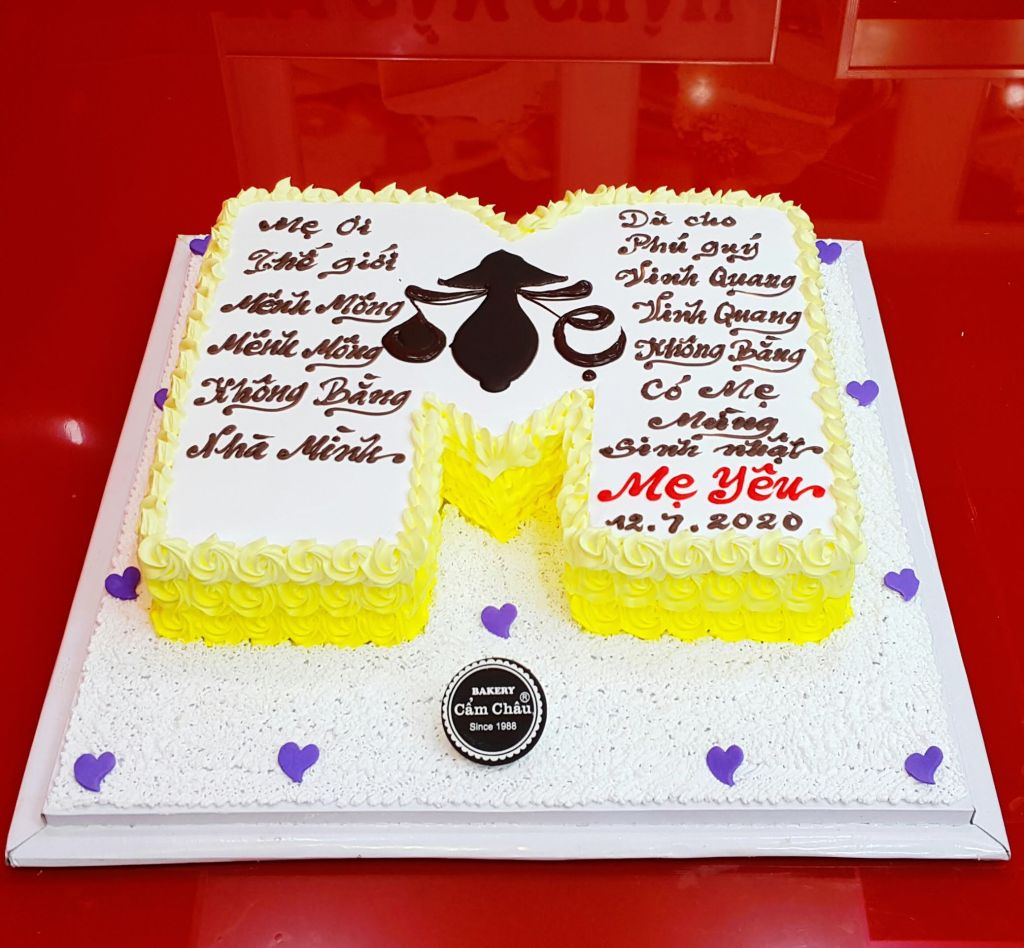 Mẹ Ơi
Thế giới
Mênh Mông
Mênh Mông
Không Bằng
Nhà Mình
Dù cho
Phú quý
Vinh Quang
Vinh Quang
Không Bằng
Có Mẹ
Mừng
Sinh nhật
Mẹ Yêu
12.7.2020
BAKERY
Cẩm Châu®
Since 1988